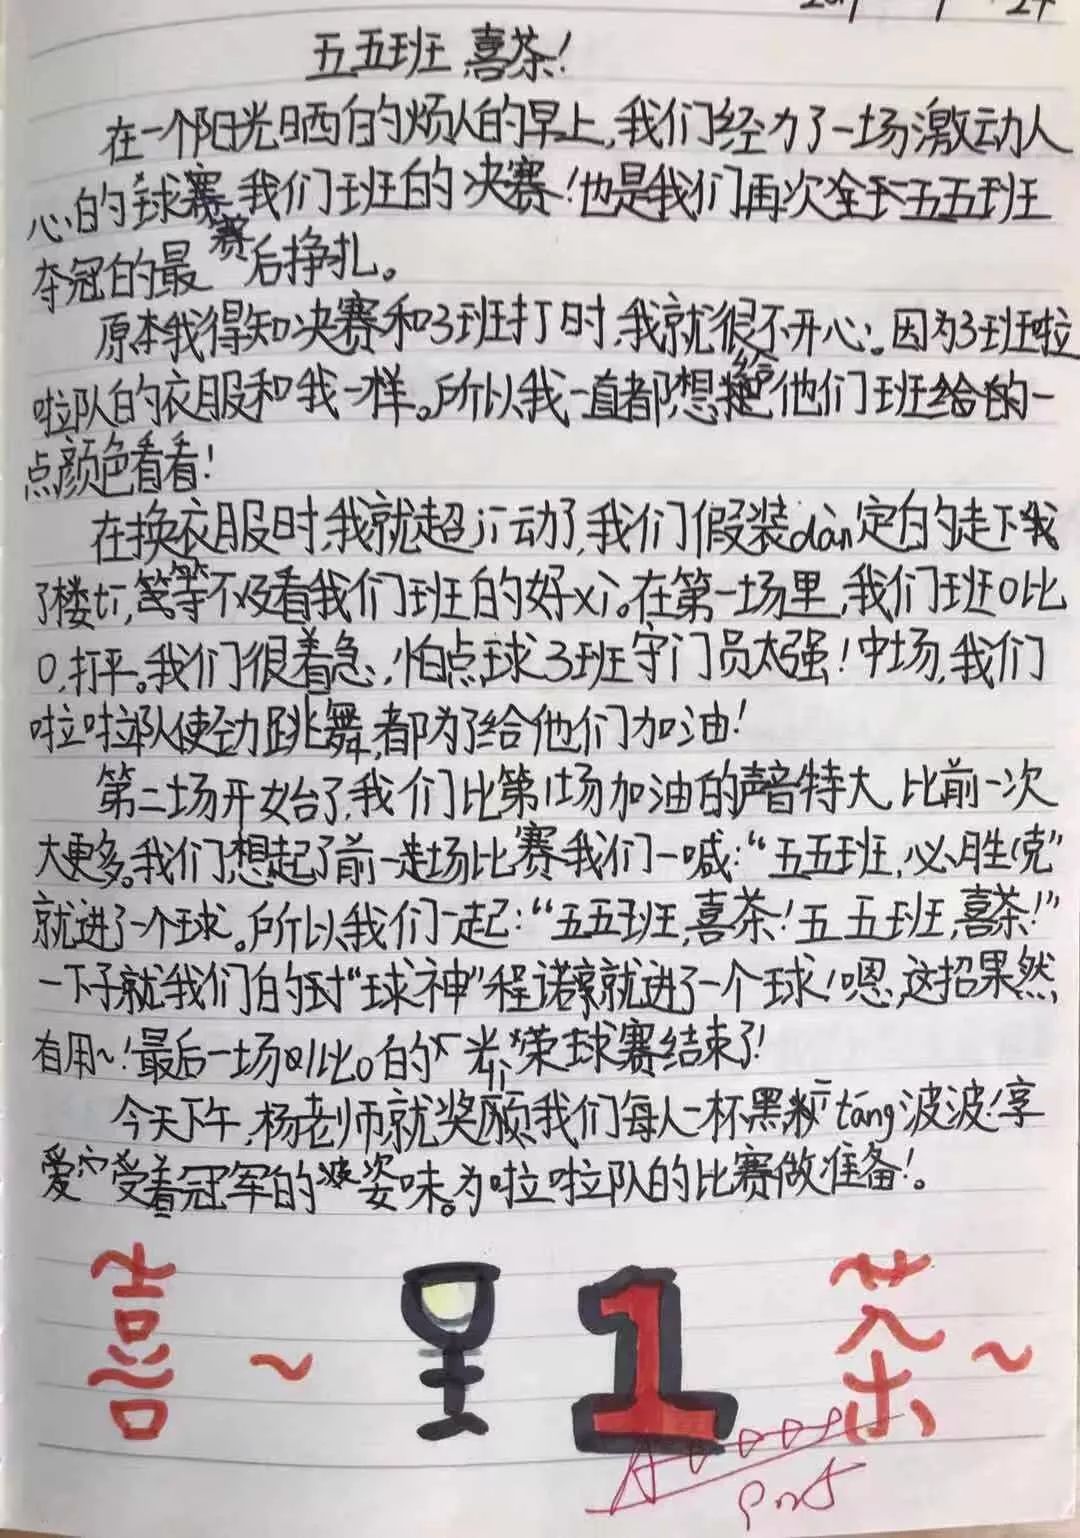 五五班,喜茶!
在一个阳光晒的烦人的早上,我们经力了一场激动人
心的球赛 我们班的决赛!也是我们再次全 五五班
夺冠的最 赛 后挣扎。
原本我得知决赛和3班打时,我就很不开心。因为3班啦
啦队的衣服和我一样。所以我一直都想 给 他们班给的一
点颜色看看!
在换衣服时,我就超ji动了,我们假装dàn定的走下
了楼ti,等不及看我们班的好xi。在第一场里,我们班0比
0,打平。我们很着急,怕点球3班守门员太强!中场,我们
啦啦队使劲跳舞,都为了给他们加油!
第二场开始了,我们比第1场加油的声音特大,比前一次
大更多。我们想起了前一场比赛我们一喊:“五五班,必胜克”
就进了一个球。所以我们一起:“五五班,喜茶!五五班,喜茶!”
一下子就我们的“球神”程诺就进了一个球!嗯,这招果然
有用~!最后一场以1比0的光荣球赛结束了!
今天下午,杨老师就奖 我们每人一杯黑 táng波波!享
受着冠军的 姿味。为啦啦队的比赛做准备!。
喜 ~ 1 茶 ~